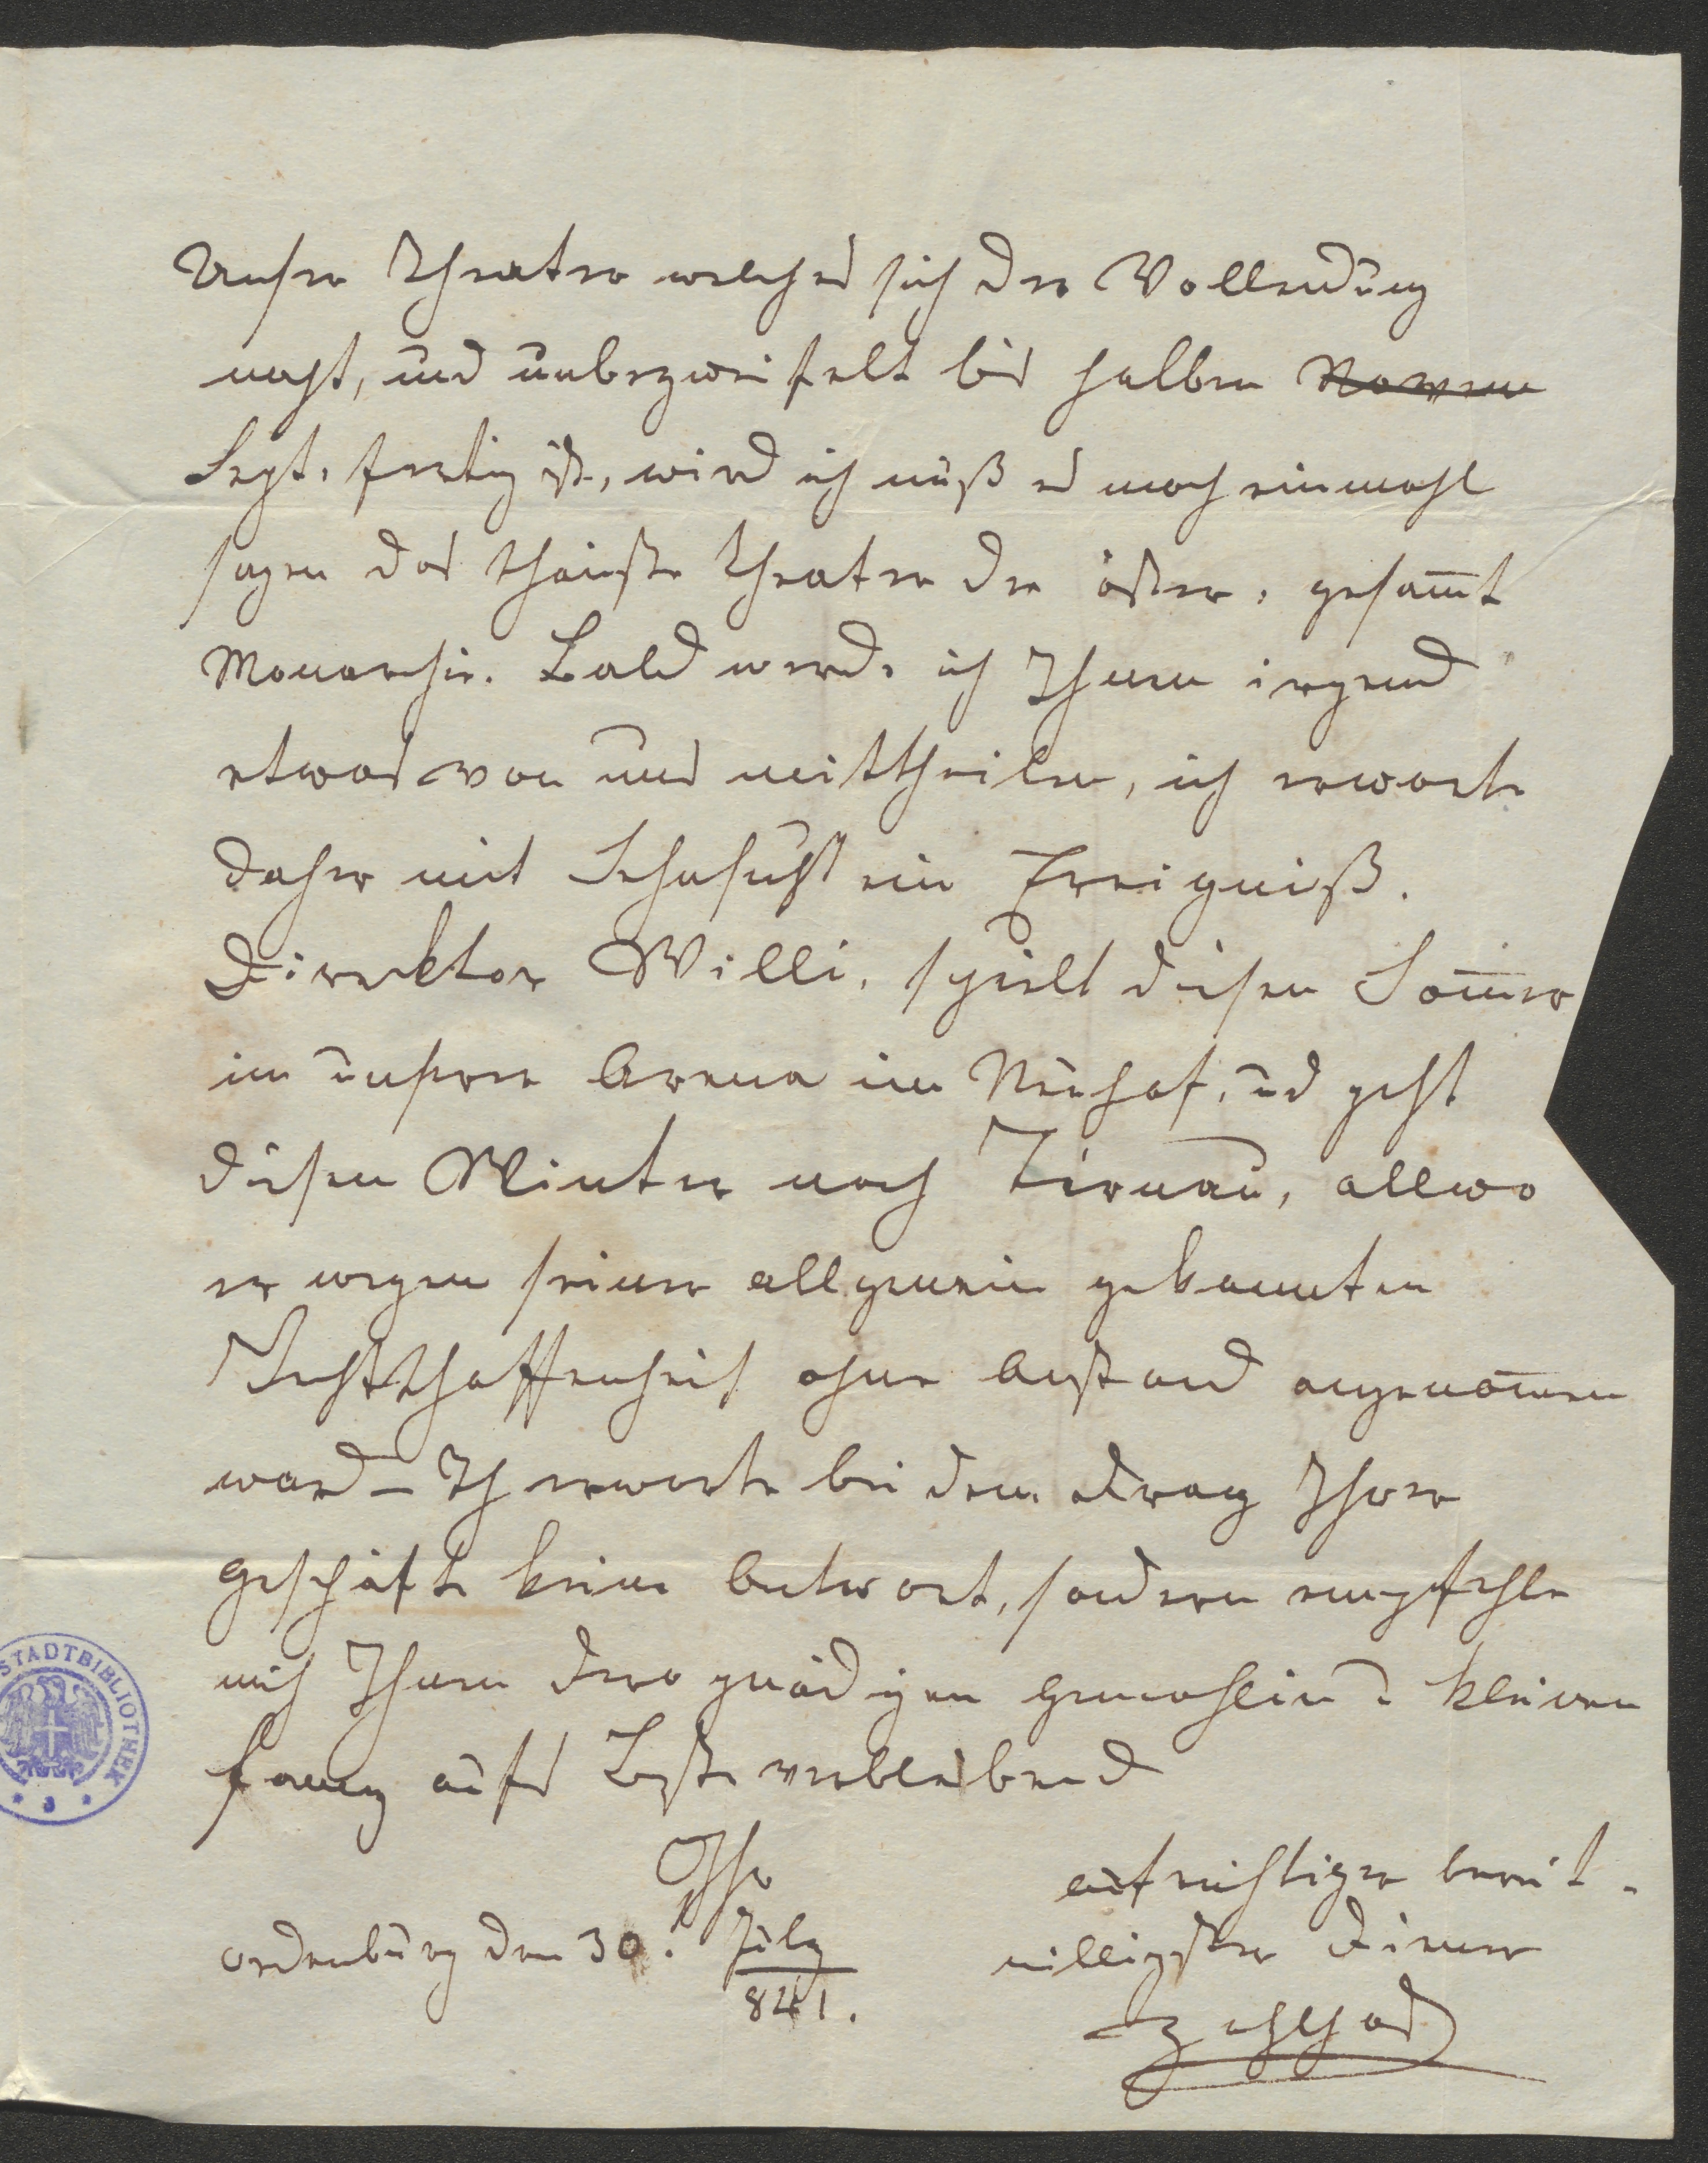 Unser Theater welches sich der Vollendung
naht, und unbezweifelt bis halben Novem
Sept. fertig ist, wird ich muß es noch einmahl
sagen das schönste Theater der öster. gesam̅t
Monarchie. Bald werde ich Ihnen irgend
etwas von uns mittheilen, ich erwarte
daher mit Sehnsucht ein Ereigniß.
Direktor Willi, spielt diesen Som̅er
in unserer Arena im Neuhof, und geht
diesen Winter nach Tirnau, allwo
er wegen seiner allgemein gekannten
Rechtschaffenheit ohne Anstand angenom̅en
ward – Ich erwarte bei dem Drang Ihrer
Geschäfte keine Antwort, sondern empfehle
mich Ihnen dero gnädigen Gemahlin u kleinen
Fanny aufs Beste verbleibend
Ihr
aufrichtiger bereit-
willigster Diener
Oedenburg den 30t July
841.
STADTBIBLIOTHEK